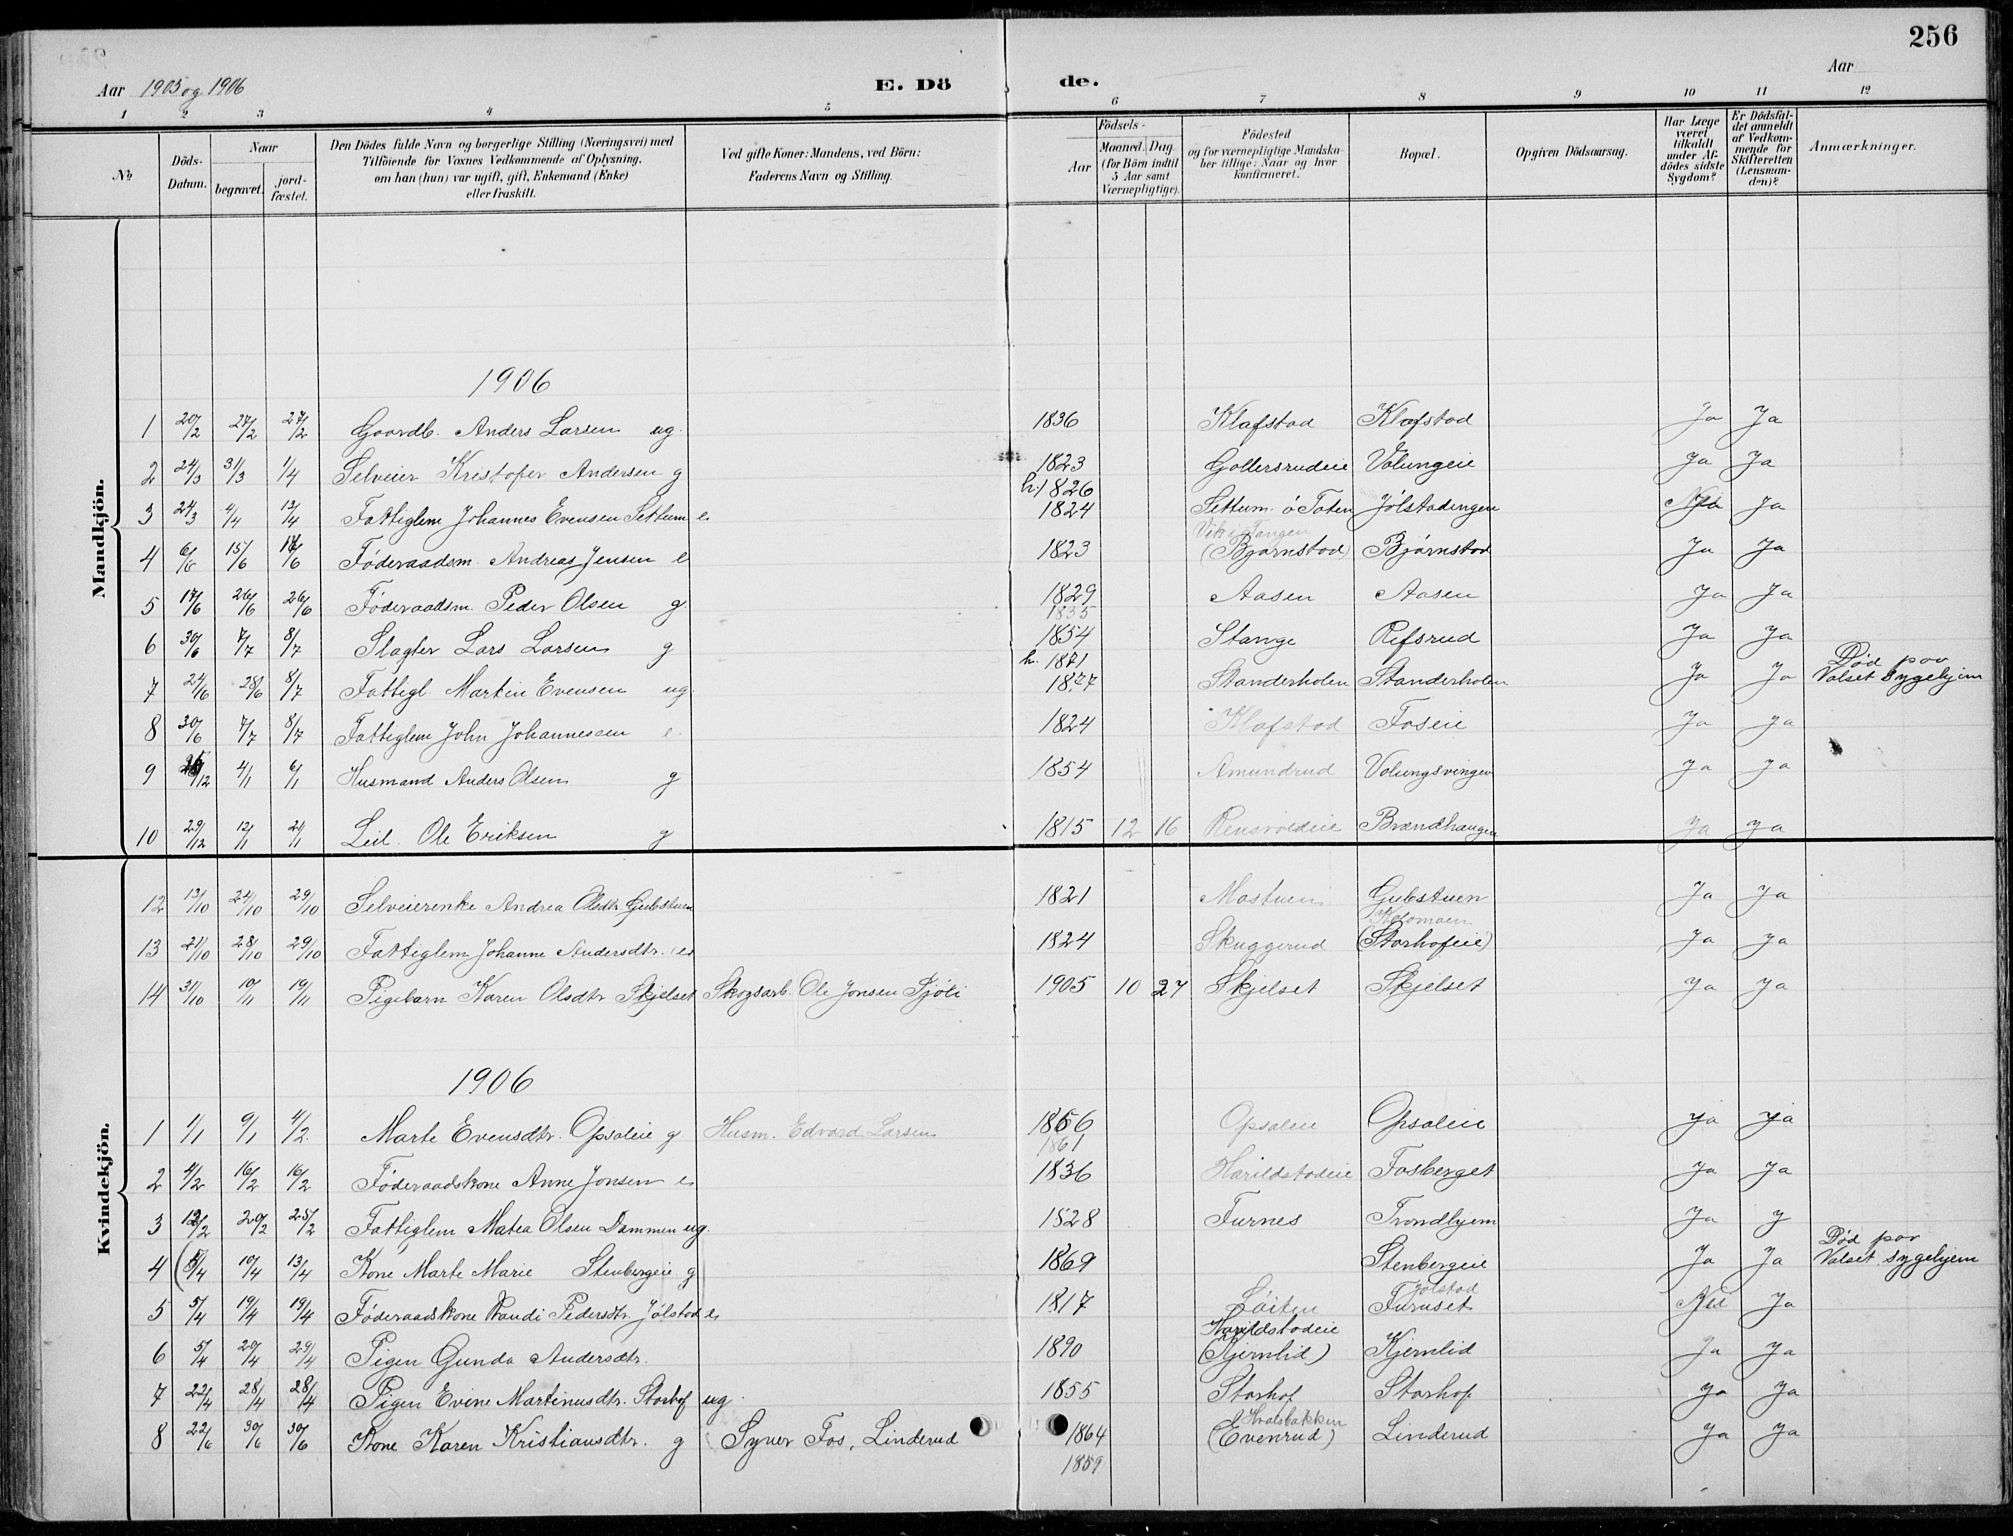 256
Aar 1905 og 1906 E. Dö de. Aar
1 2 3 4 5 6 7 8 9 10 11 12
No
Döds-Datum.
Naar
begravet.
jord-fæstet.
Den Dödes fulde Navn og borgerlige Stilling (Næringsvei) med
Tilföiende for Voxnes Vedkommende af Oplysning,
om han (hun) var ugift, gift, Enkemand (Enke)
eller fraskilt.
Ved gifte Koner: Mandens, ved Börn:
Faderens Navn og Stilling.
Födsels-
Aar
Maaned. Dag.
(for Börn indtil
5 Aar samt
Værnepligtige).
Födested
og for værnepligtige Mandska-
ber tillige: Naar og hvor
konfirmeret.
Bopæl.
Opgiven Dödsaarsag.
Har Læge
været
tilkaldt
under Af-
dödes sidste
Sygdom?
Er Dödsfal-
det anmeldt
af Vedkom-
mende for
Skifteretten
(Lensman-
den)?
Anmærkninger.
Mandkjön.
1906
1 20/2 27/2 27/2 Gaardb. Anders Larsen ug. 1836 Klafstad Klæfstad Ja Ja
2 24/3 31/3 1/4 Selveier Kristofer Andersen g 1823 Gollersrudeie Volungeie Ja Ja
h. 1826
3 24/3 4/4 13/4 Fattiglem Johannes Evensen Settum e 1824 Settum ö Toten Jølstadengen Ja
Vik i Tangen
4 6/6 15/6 17/6 Føderaadsm. Andreas Jensen e 1823 (Bjørnstad) Bjørnstad Ja Ja
5 17/6 26/6 26/6 Føderaadsm. Peder Olsen g 1829 Aasen Aasen Ja Ja
1835
6 30/6 7/7 8/7 Slagter Lars Larsen g 1854 Stange Refsrud Ja Ja
h. 1871
7 24/6 28/6 8/7 Fattigl. Martin Evensen ug 1877 Standerholen Standerholen Ja Ja Død paa Valset sygehjem
8 30/6 7/7 8/7 Fattiglem John Johannessen e. 1824 Klafstad Foseie Ja Ja
9 4/1 6/1 Husmand Anders Olsen g 1854 Amundrud Volungsvingen Ja Ja
10 29/12 12/1 21/1 Leil. Ole Eriksen g 1815 12 16 Rensvoldeie Brændhaugen Ja Ja
12 13/10 24/10 29/10 Selveierenke Andrea Olsdtr. Gubstuen 1821 Mostuen Gubstuen Ja Ja
13 21/10 28/10 29/10 Fattiglem Johanne Andersdtr. e 1824 Skuggerud (Storhofeie) Ja Ja
14 31/10 10/11 19/11 Pigebarn Karen Olsdtr Skjelset Skogsarb. Ole Jonsen Sjøli 1905 10 27 Skjelset Skjelset Ja Ja
Kvindekjön.
1906
1 1/1 9/1 4/2 Marte Evensdtr. Opsaleie g Husm. Edvard Larsen 1856 Opsaleie Opsaleie Ja Ja
1861
2 4/2 16/2 16/2 Føderaadskone Anne Jonsen e 1836 Harildstadeie Fosberget Ja Ja
3 12/2 20/2 25/2 Fattiglem Matea Olsen Dammen ug. 1828 Furnes Trondhjem Ja y
4 (8/4 10/4 13/4 Kone Marte Marie Stenbergeie g 1869 Stenbergeie Ja Ja Død paa Valset sygehjem
Jølstad
5 5/4 19/4 19/4 Føderaadskone Randi Pedersdtr Jølstad e 1817 Løiten Furuset Nei Ja
Harildstadeie
6 5/4 20/4 29/4 Pigen Gunda Andersdtr. 1890 (Kjernlid) Kjernlid Ja Ja
7 22/4 28/4 28/4 Pigen Evine Martinusdtr. Storhof ug. 1855 Storhof Storhof Ja Ja
Hvalsbakken
8 22/6 30/6 30/6 Kone Karen Kristiansdtr. g Syver Fos, Linderud 1864 (Evenrud) Linderud Ja Ja
1859